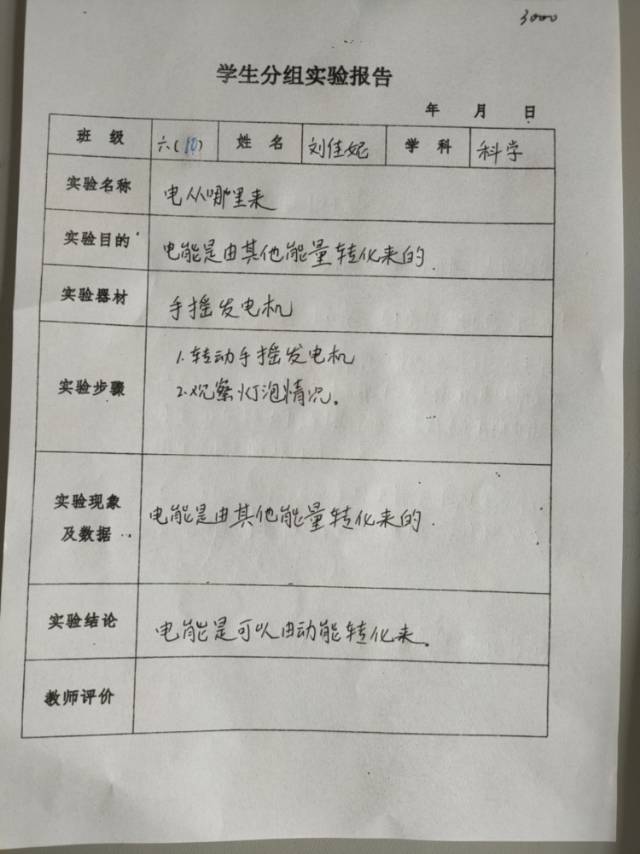 3000
学生分组实验报告
年 月 日
班 级 六(10) 姓 名 刘佳妮 学 科 科学
实验名称 电从哪里来
实验目的 电能是由其他能量转化来的.
实验器材 手摇发电机
实验步骤
1.转动手摇发电机
2.观察灯泡情况。
实验现象
及数据
电能是由其他能量转化来的.
实验结论 电能是可以由动能转化来。
教师评价